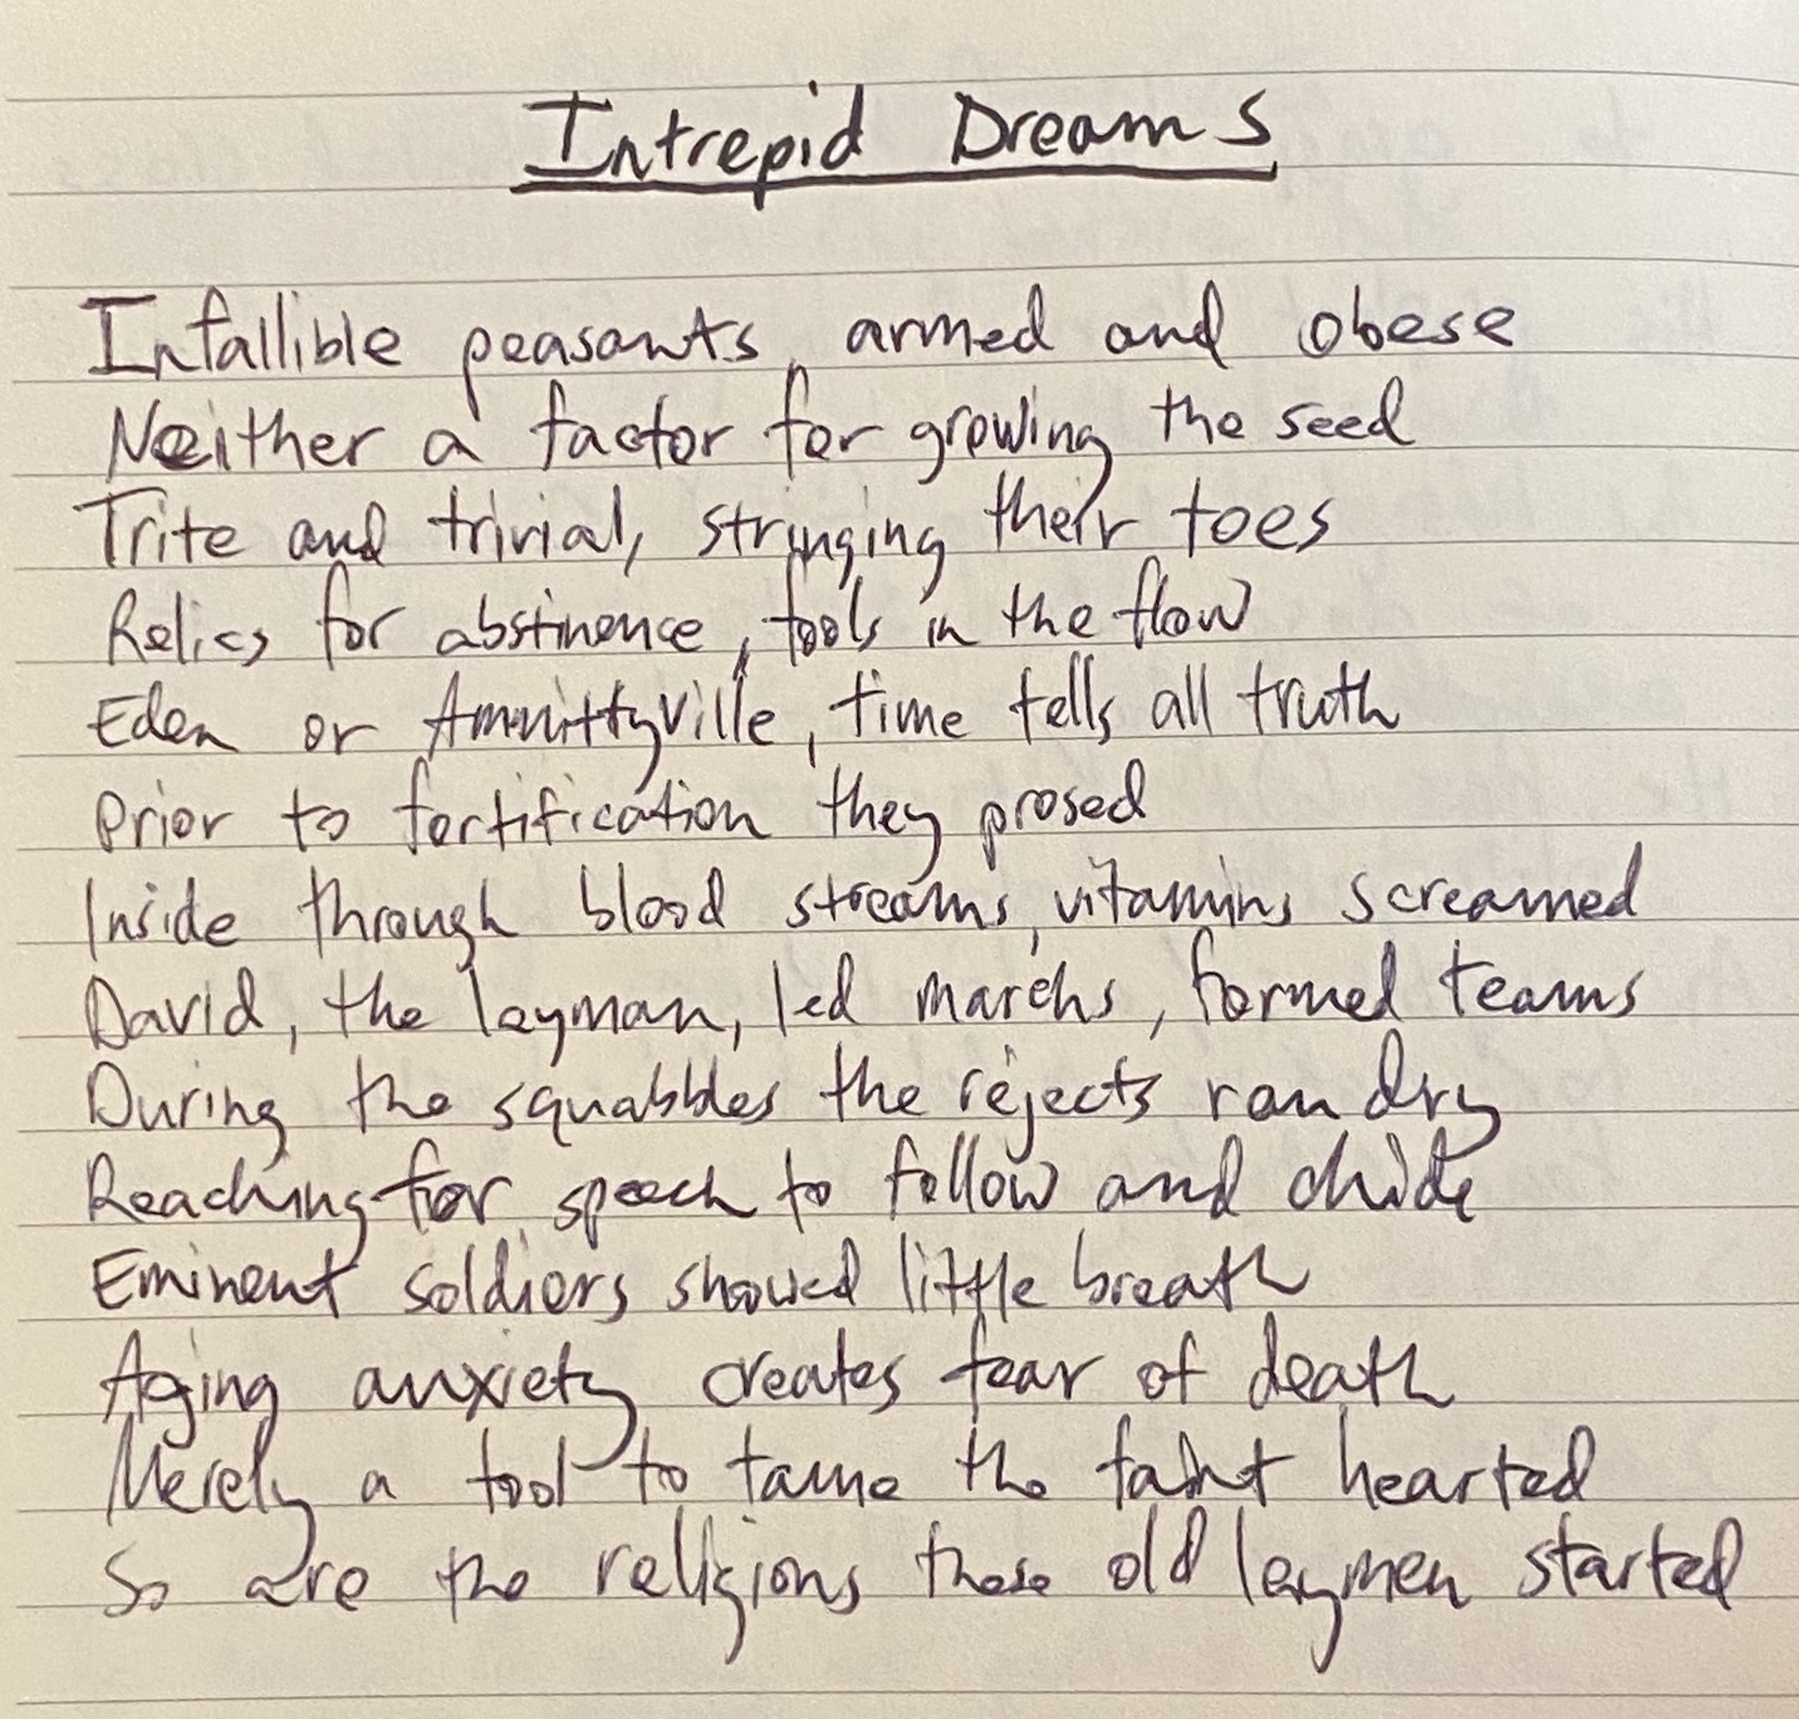 Intrepid Dreams
Infallible peasants, armed and obese
Neither a factor for growing the seed
Trite and trivial, stringing their toes
Relics for abstinence, fools in the flow
Eden or Ammittyville, time tells all truth
Prior to fortification they prosed
Inside through blood streams, vitamins screamed
David, the layman, led marchs, formed teams
During the squabbles the rejects ran dry
Reaching for speech to follow and chide
Eminent soldiers showed little breath
Aging anxiety creates fear of death
Merely a tool to tame the faint hearted
So are the religions these old laymen started